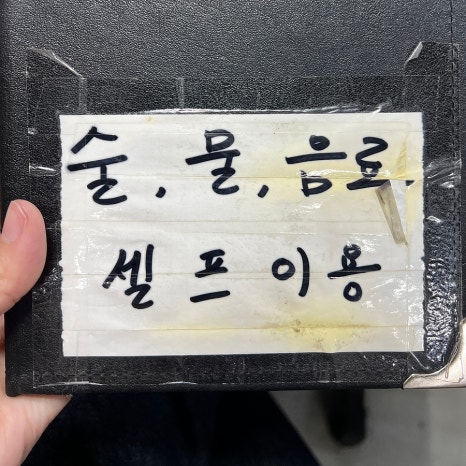 술, 물, 음료.
셀프 이용